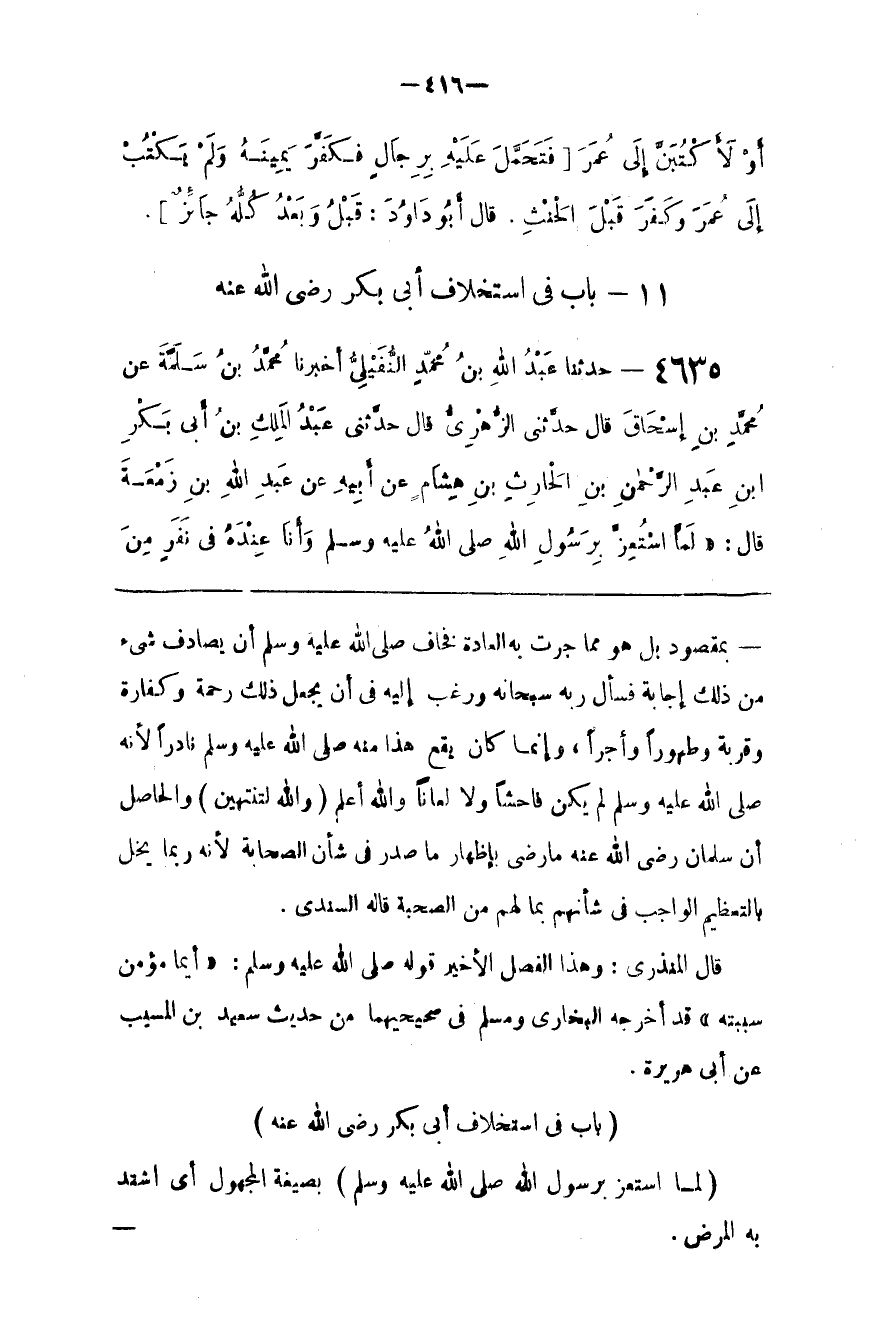 —٤١٦—
أَوْ لَأَكْتُبَنَّ إِلَى عُمَرَ [ فَتَحَمَّلَ عَلَيْهِ بِرِجَالٍ فَكَفَّرَ يَمِينَهُ وَلَمْ يَكْتُبْ
إِلَى عُمَرَ وَكَفَّرَ قَبْلَ الْحِنْثِ . قال أَبُو دَاوُدَ : قَبْلُ وَبَعْدُ كُلُّهُ جَائِزٌ ] .
١١ — باب فى استخلاف أبى بكر رضى الله عنه
٤٦٣٥ — حدثنا عَبْدُ اللهِ بنُ مُحَمَّدٍ النُّفَيْلِىُّ أخبرنا مُحَمَّدُ بنُ سَلَمَةَ عن
مُحَمَّدِ بنِ إِسْحَاقَ قال حدَّثنى الزُّهْرِىُّ قال حدَّثنى عَبْدُ الْمَلِكِ بنُ أبى بَكْرِ
ابنِ عَبدِ الرَّحْمٰنِ بنِ الْحَارِثِ بنِ هِشَامٍ عن أَبِيهِ عن عَبدِ اللهِ بنِ زَمْعَةَ
قال : « لَمَّا اسْتُعِزَّ بِرَسُولِ اللهِ صلى اللهُ عليه وسلم وَأَنَا عِنْدَهُ فى نَفَرٍ مِنَ
— بمقصود بل هو مما جرت به العادة فخاف صلى الله عليه وسلم أن يصادف شىء
من ذلك إجابة فسأل ربه سبحانه ورغب إليه فى أن يجعل ذلك رحمة وكفارة
وقربة وطهوراً وأجراً ، وإنما كان يقع هذا منه صلى الله عليه وسلم نادراً لأنه
صلى الله عليه وسلم لم يكن فاحشاً ولا لعاناً والله أعلم ( والله لتنتهين ) والحاصل
أن سلمان رضى الله عنه مارضى بإظهار ما صدر فى شأن الصحابة لأنه ربما يخل
بالتعظيم الواجب فى شأنهم بما لهم من الصحبة قاله السندى .
قال المنذرى : وهذا الفصل الأخير قوله صلى الله عليه وسلم : « أيما مؤمن
سببته » قد أخرجه البخارى ومسلم فى صحيحيهما من حديث سعيد بن المسيب
عن أبى هريرة .
( باب فى استخلاف أبى بكر رضى الله عنه )
( لما استعز برسول الله صلى الله عليه وسلم ) بصيغة المجهول أى اشتد
به المرض . —